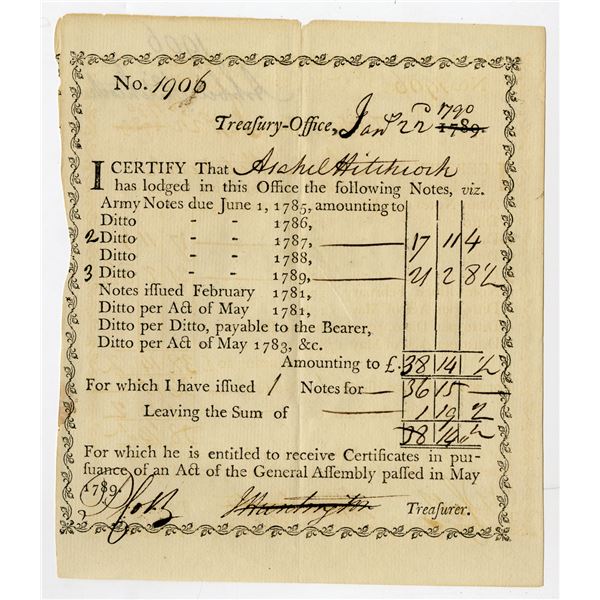 No. 1906
Treasury-Office, Jany 22d 1790 1789.
I CERTIFY That Aschel Hitchcock
has lodged in this Office the following Notes, viz.
Army Notes due June 1, 1785, amounting to
Ditto - - 1786,
2 Ditto - - 1787, 17 11 4
Ditto - - 1788,
3 Ditto - - 1789, 21 2 8½
Notes issued February 1781,
Ditto per Act of May 1781,
Ditto per Ditto, payable to the Bearer,
Ditto per Act of May 1783, &c.
Amounting to £. 38 14 ½
For which I have issued 1 Notes for 36 15 —
Leaving the Sum of 1 19 2
38 14 0½
For which he is entitled to receive Certificates in pur-
suance of an Act of the General Assembly passed in May
1789.
J Huntington Treasurer.